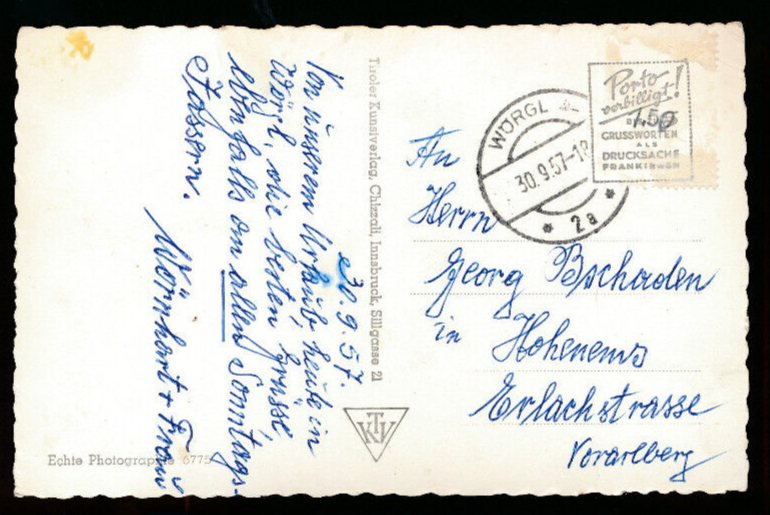 30.9.57.
Von unserem Urlaub, heute in
Wörgl, die besten Grüsse
ebenfalls an allen Sonntags-
Jassern.
Wörnhart + Frau
Tiroler Kunstverlag, Chizzali, Innsbruck, Sillgasse 21
KTV
Echte Photographie 6775
WÖRGL
30.9.57-18
* 2a *
Porto
verbilligt!
1,50
GRUSSWORTEN
ALS
DRUCKSACHE
An
Herrn
Georg Bschaden
in Hohenems
Erlachstrasse
Vorarlberg